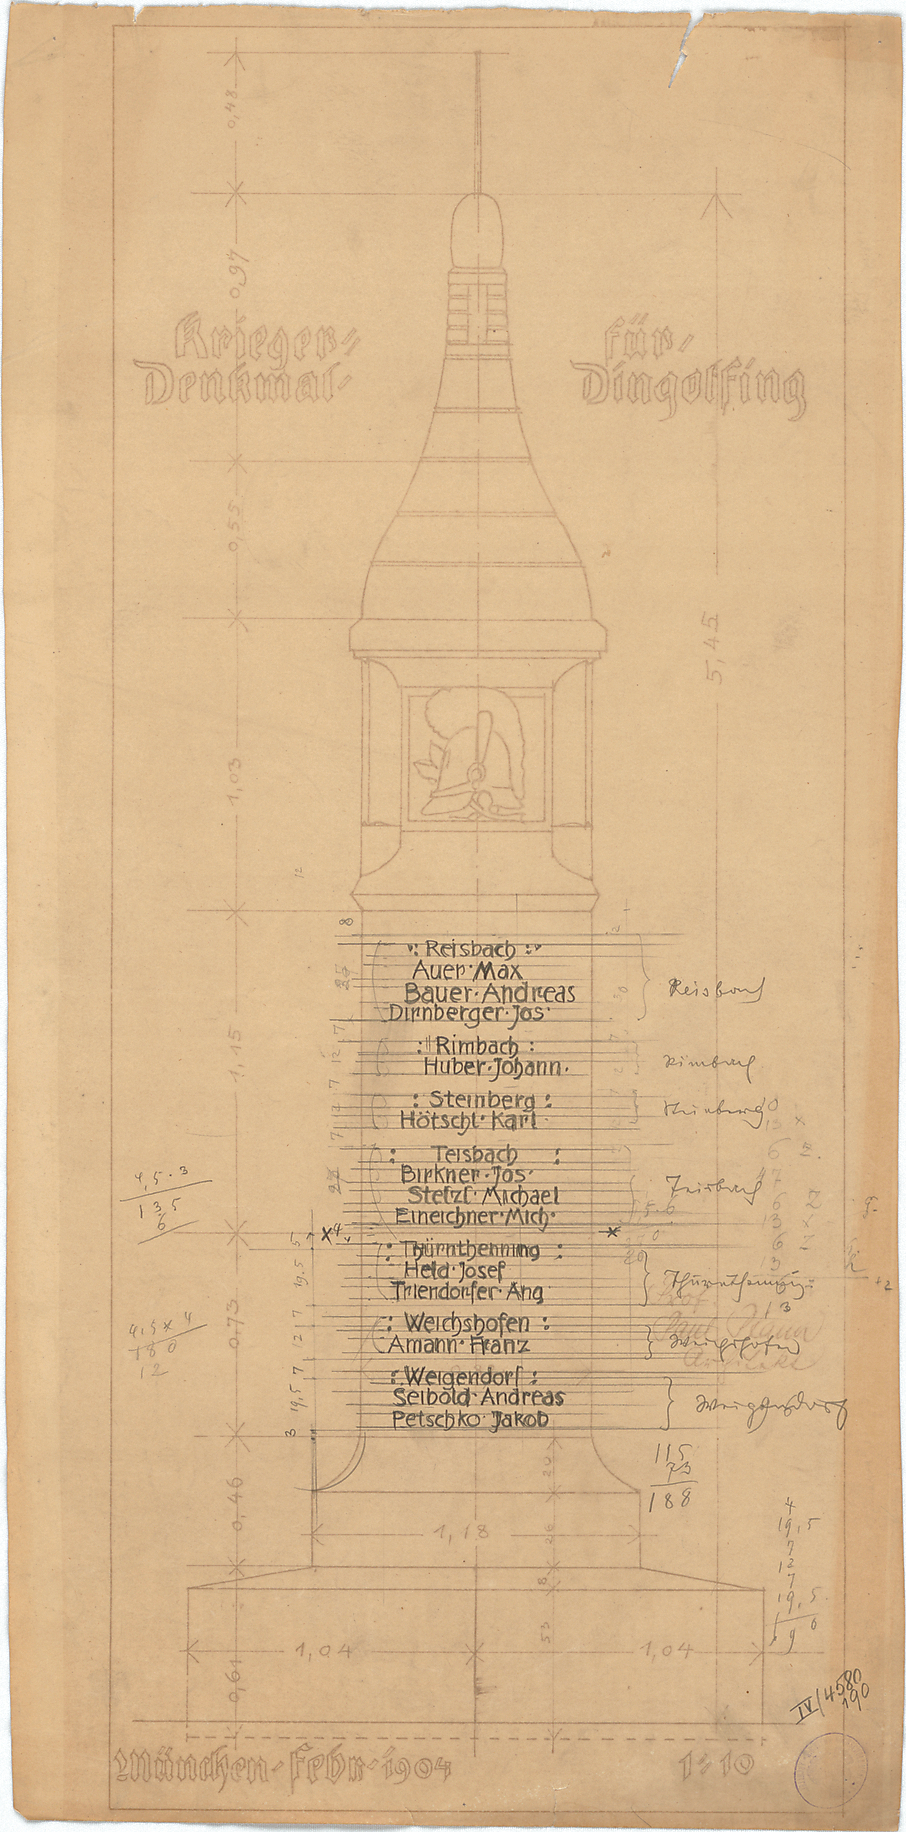 0,48
0,97
Krieger-
Denkmal-
für-
Dingolfing
0,55
5,45
1,03
12
8
1,15
:Reisbach:
Auer·Max
Bauer·Andreas
Dirnberger·Jos·
Reisbach
7
:Rimbach:
Huber·Johann·
Rimbach
12
7
:Steinberg:
Hötschl·Karl
Steinberg
12
17
: Teisbach :
Birkner·Jos·
Stelzl·Michael
Eineichner·Mich·
Teisbach
4,5·3
135
6
x4
x
5
: Thürnthenning :
Held·Josef
Triendorfer·Ang
Thürnthenning
19,5
7
0,73
: Weichshofen :
Amann·Franz
Weichshofen
4,5x4
180
12
12
7
: Weigendorf :
Seibold·Andreas
Petschko·Jakob
Weigendorf
19,5
3
115
73
188
0,46
20
1,18
26
8
4
19,5
7
12
7
19,5
1,04
1,04
53
0,61
IV/4580
190
München-Febr·1904
1:10